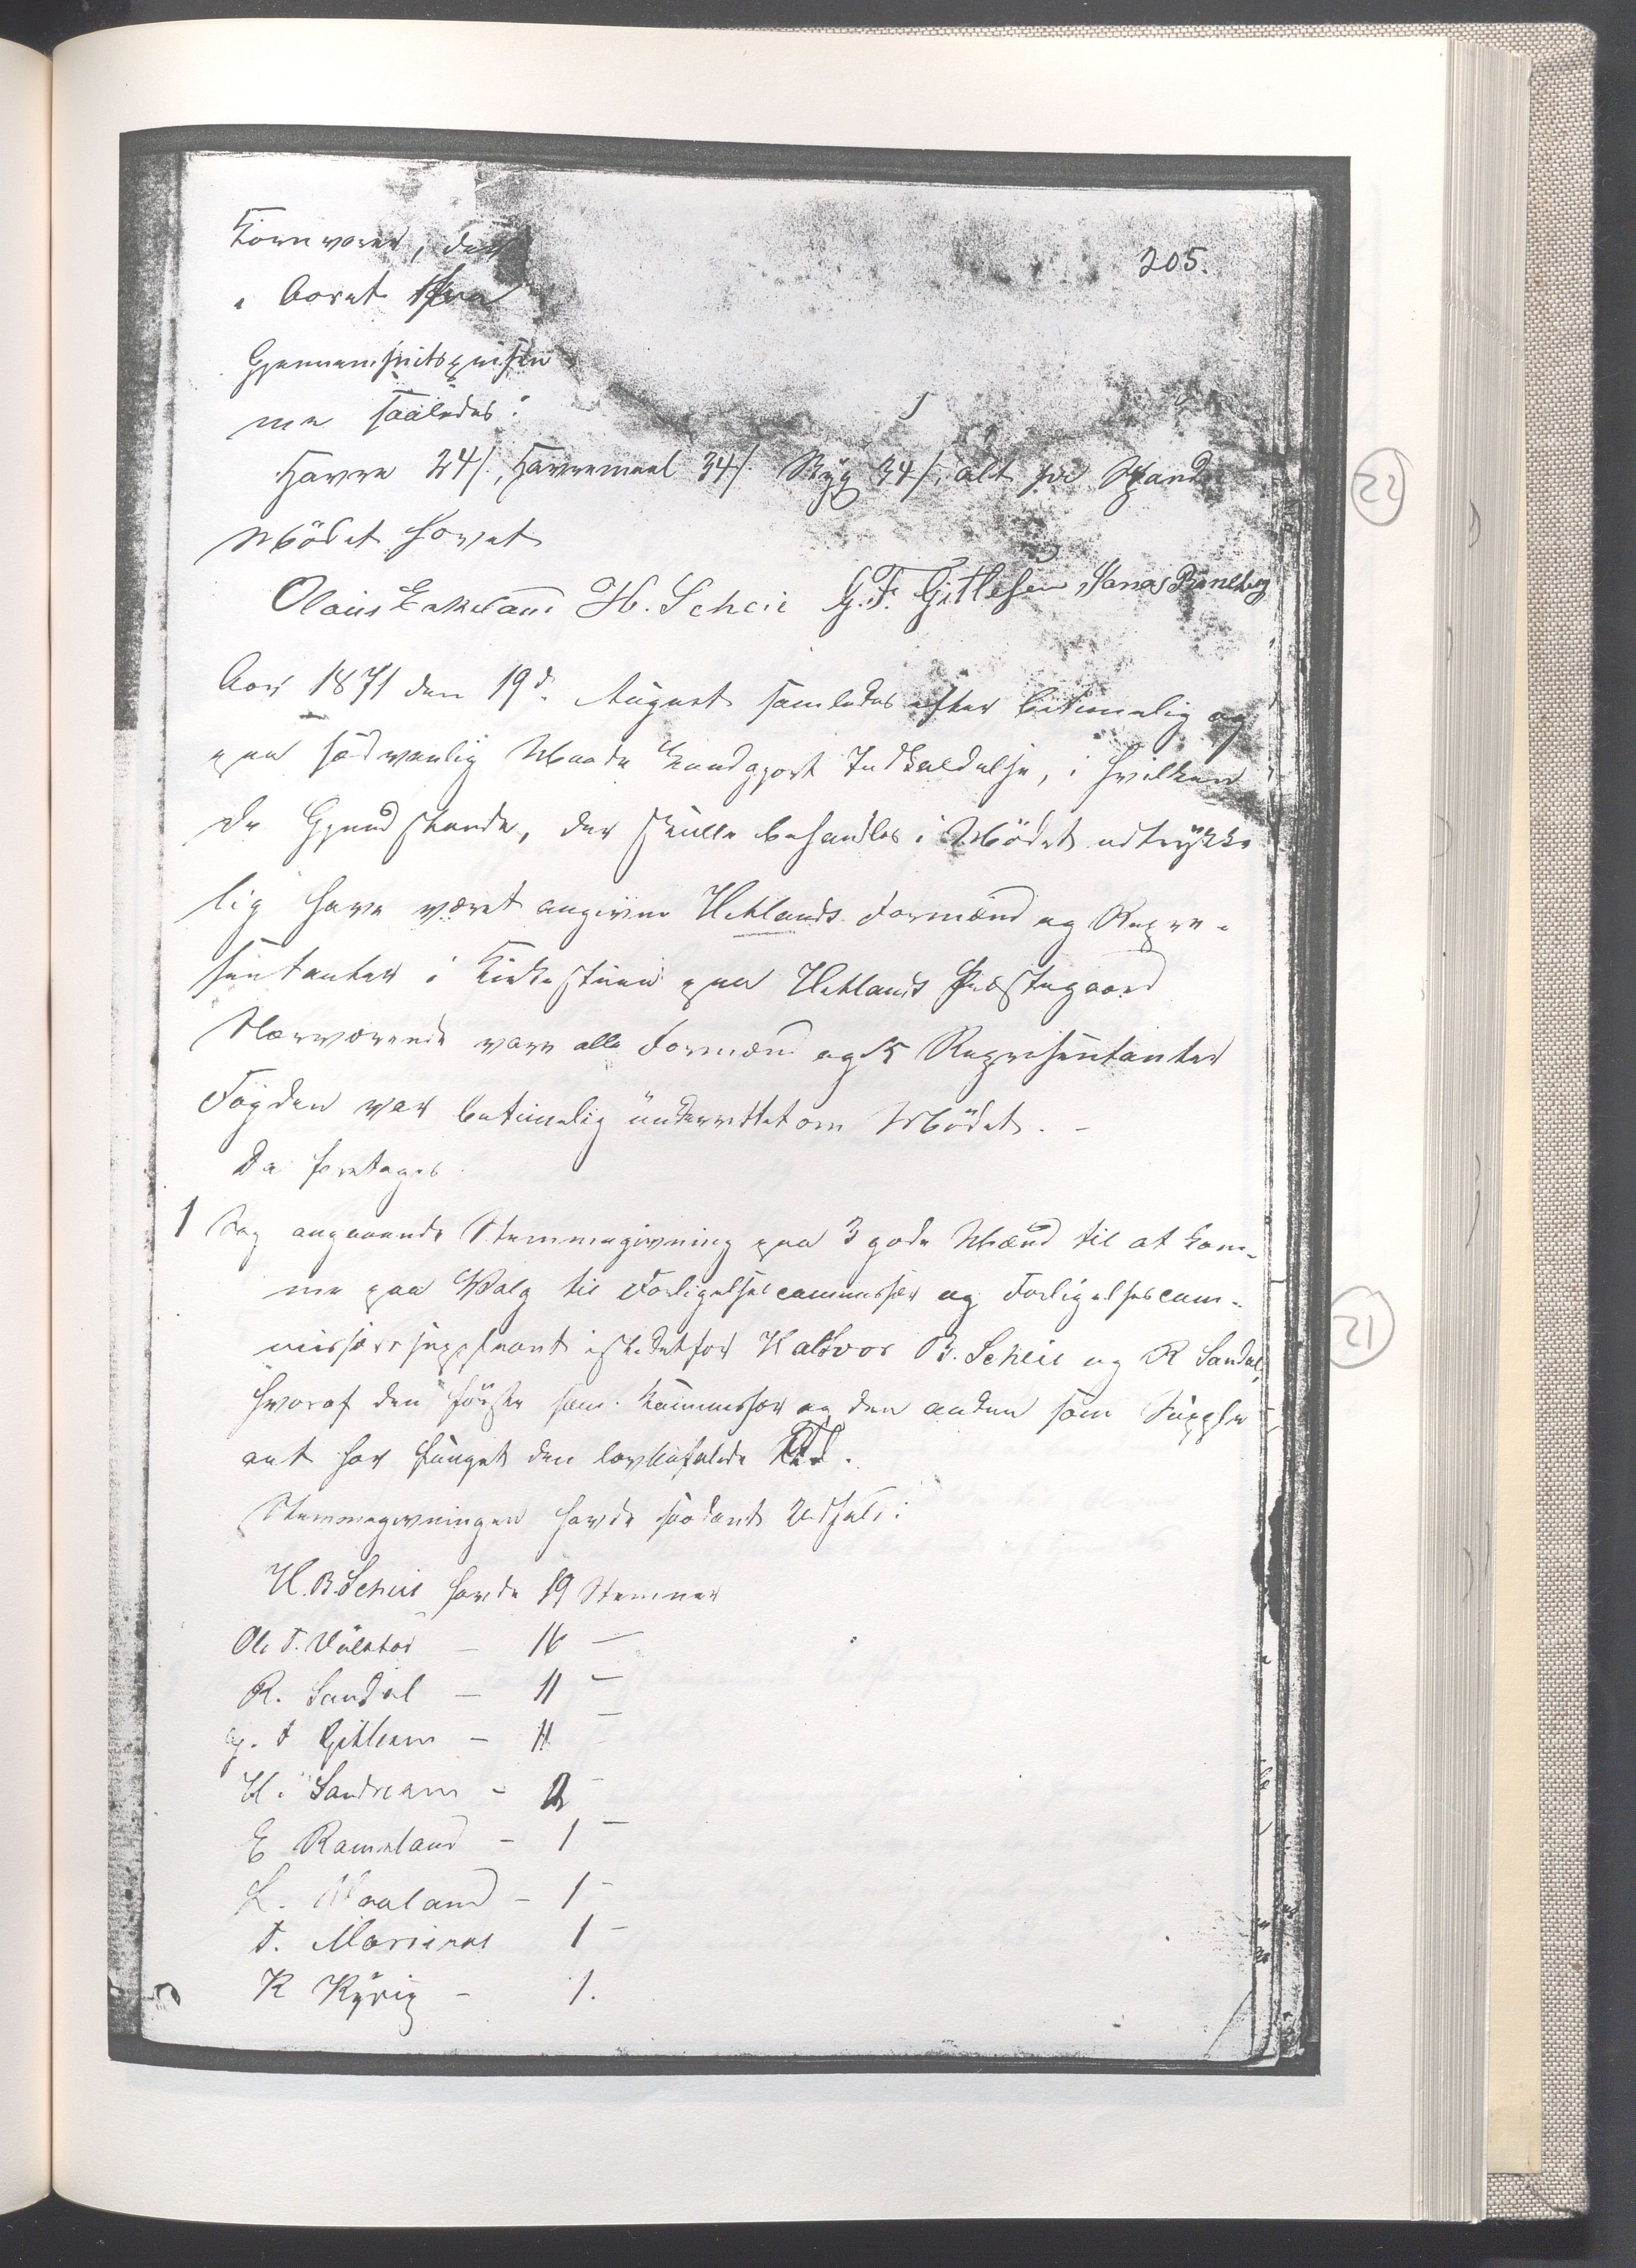 205.
Kornvarer, der
i Aaret
Gjennemsnitspriser
ne saaledes:
Havre 24/, Havremeel 34/. Byg 34/, alt pr Spand
Mödet hævet
Olaus Eskeland H. Scheie G. F. Gitlesen Jonas
Aar 1871 den 19d. August samledes efter betimelig og
paa sædvanlig Maade kundgjort Indkaldelse, i hvilken
de Gjenstande, der skulle behandles i Mödet udtrykke
lig have været angivne Hetlands Formænd og Repre-
sentanter i Kirkestuen paa Hetlands Præstegaard
Nærværende vare alle Formænd og 15 Representanter
Fogden var betimelig underrettet om Mödet. -
Da foretoges
1 Sag angaaende Stemmegivning paa 3 gode Mænd til at kom-
me paa Valg til Forligelsescommissær og Forligelsescom-
missærsuppleant istedetfor Halvor B. Scheie og R Sandal,
hvoraf den förste som Kommissær og den anden som Supple
ant har fungert den lovbefalede Tid.
Stemmegivningen havde saadant Udfald:
H. B Scheie havde 19 Stemmer
Ole T. Vålator - 16 -
R. Sandal - 11 -
G. F Gitlesen - 11 -
H. Sandsem - 2 -
E Rameland - 1 -
L. Meeland - 1 -
T. Marieros 1 -
K Kyrig - 1.
22
21